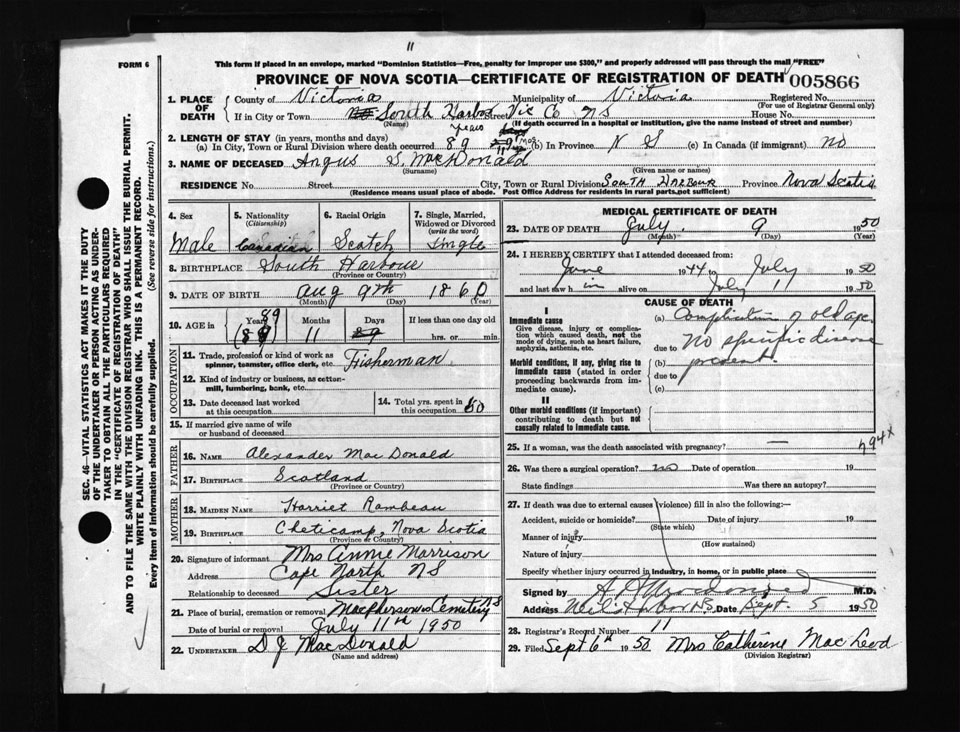 11
FORM 6
This form if placed in an envelope, marked "Dominion Statistics—Free, penalty for improper use $300," and properly addressed will pass through the mail "FREE"
PROVINCE OF NOVA SCOTIA—CERTIFICATE OF REGISTRATION OF DEATH 005866
1. PLACE OF DEATH County of Victoria Municipality of Victoria Registered No.
(For use of Registrar General only)
If in City or Town South Harbor Street Vic Co NS House No.
(Name) (If death occurred in a hospital or institution, give the name instead of street and number)
2. LENGTH OF STAY (in years, months and days) years
(a) In City, Town or Rural Division where death occurred 89 11 mos (b) In Province N S (c) In Canada (if immigrant) no
3. NAME OF DECEASED Angus S. MacDonald
(Surname) (Given name or names)
RESIDENCE No. Street City, Town or Rural Division South Harbour Province Nova Scotia
(Residence means usual place of abode. Post Office Address for residents in rural parts, not sufficient)
4. Sex 5. Nationality (Citizenship) 6. Racial Origin 7. Single, Married, Widowed or Divorced (write the word)
Male Canadian Scotch Single
8. BIRTHPLACE South Harbour
(Province or Country)
9. DATE OF BIRTH Aug 9th 1860
(Month) (Day) (Year)
10. AGE in Years Months Days If less than one day old
89 11 hrs. or min.
OCCUPATION
11. Trade, profession or kind of work as spinner, teamster, office clerk, etc. Fisherman
12. Kind of industry or business, as cotton-mill, lumbering, bank, etc.
13. Date deceased last worked at this occupation 14. Total yrs. spent in this occupation 50
15. If married give name of wife or husband of deceased
FATHER
16. Name Alexander Mac Donald
17. Birthplace Scotland
(Province or Country)
MOTHER
18. Maiden Name Harriet Rambeau
19. Birthplace Cheticamp, Nova Scotia
(Province or Country)
20. Signature of informant Mrs Annie Morrison
Address Cape North NS
Relationship to deceased Sister
21. Place of burial, cremation or removal MacPhersons Cemetery NS
Date of burial or removal July 11th 1950
22. UNDERTAKER D J MacDonald
(Name and address)
MEDICAL CERTIFICATE OF DEATH
23. DATE OF DEATH July 9 1950
(Month) (Day) (Year)
24. I HEREBY CERTIFY that I attended deceased from:
June 1944 to July 1950
and last saw him alive on July 1 1950
CAUSE OF DEATH
I
Immediate cause
Give disease, injury or complication which caused death, not the mode of dying, such as heart failure, asphyxia, asthenia, etc.
Morbid conditions, if any, giving rise to Immediate cause (stated in order proceeding backwards from immediate cause).
II
Other morbid conditions (if important) contributing to death but not causally related to immediate cause.
(a) Complications of old age.
due to No specific disease
(b) present
due to
(c)
25. If a woman, was the death associated with pregnancy? —
794x
26. Was there a surgical operation? no Date of operation 19
State findings Was there an autopsy?
27. If death was due to external causes (violence) fill in also the following:
Accident, suicide or homicide? Date of injury 19
(State which)
Manner of injury
(How sustained)
Nature of injury
Specify whether injury occurred in industry, in home, or in public place
Signed by M.D.
Address Neil's Harbor NS. Date Sept. 5 1950
28. Registrar's Record Number 11
29. Filed Sept 6th 1950 Mrs Catherine Mac Leod
(Division Registrar)
SEC. 46—VITAL STATISTICS ACT MAKES IT THE DUTY
OF THE UNDERTAKER OR PERSON ACTING AS UNDER-
TAKER TO OBTAIN ALL THE PARTICULARS REQUIRED
IN THE "CERTIFICATE OF REGISTRATION OF DEATH"
AND TO FILE THE SAME WITH THE DIVISION REGISTRAR WHO SHALL ISSUE THE BURIAL PERMIT.
WRITE PLAINLY WITH UNFADING INK. THIS IS A PERMANENT RECORD.
Every item of information should be carefully supplied. (See reverse side for instructions.)